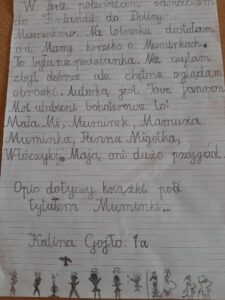 W ferie poleciałam samolotem
do Finlandii do Doliny
Muminków. Na lotnisku dostałam
od Mamy komiks o Muminkach.
To była niespodzianka. Nie czytam
zbyt dobrze ale chętnie oglądam
obrazki. Autorką jest Tove Jansson.
Moi ulubieni bohaterowie to:
Mała Mi, Muminek, Mamusia
Muminka, Panna Migotka,
Włóczykij. Mają oni dużo przygód.
Opis dotyczy książki pod
tytułem Muminki.
Kalina Gojło. 1a